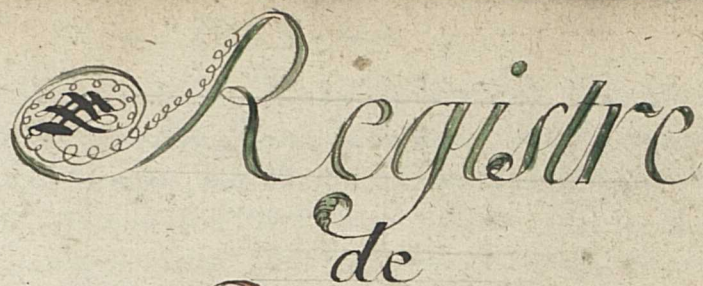 Registre
de